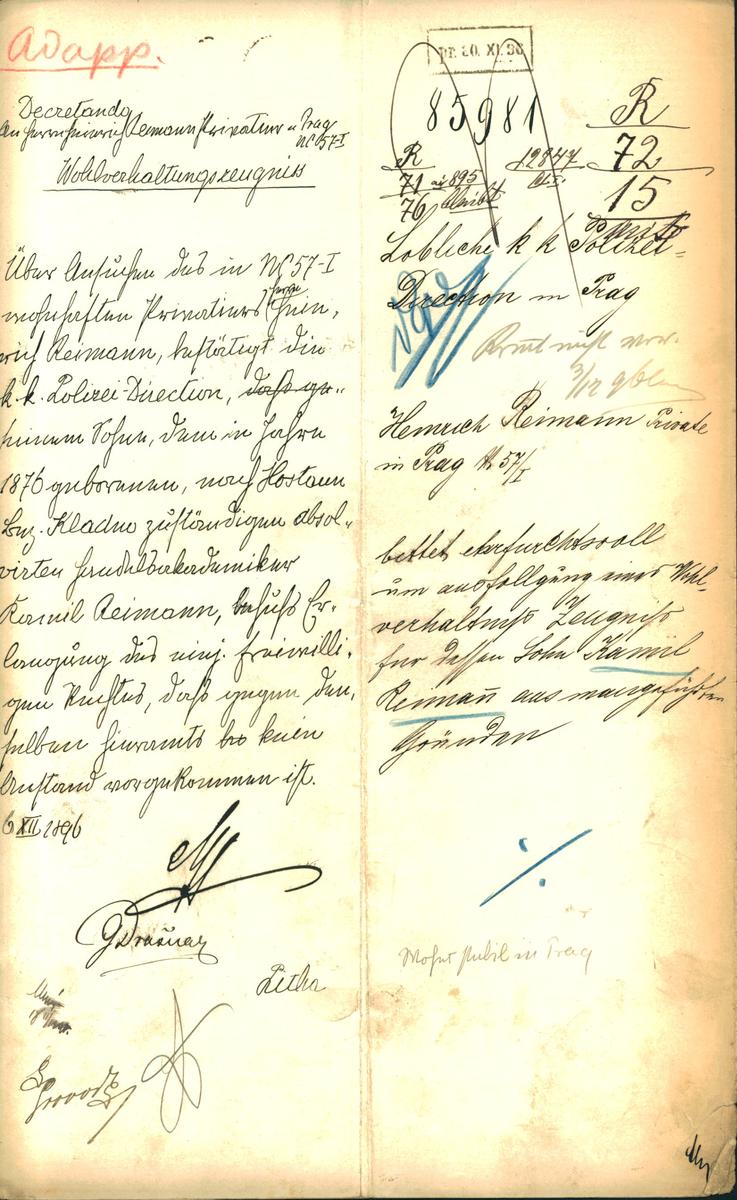 Ad app.
Decretando
An Herrn Heinrich Reimann Privatier in Prag
NC 57-I
Wohlverhaltungszeugniss
Über Ansuchen des in NC 57-I
wohnhaften Privatiers Herrn Hein-
rich Reimann, bestätigt die
k. k. Polizei-Direction, daß ge-
seinem Sohne, dem im Jahre
1876 geborenen, nach Hostaun
Bez. Kladno zuständigen absol-
virten Handelsakademiker
Kamil Reimann, behufs Er-
langung des einj. freiwilli-
gen Rechtes, daß gegen den-
selben hieramts kein
Anstand vorgekommen ist.
6 XII 1896
Pr. 20. XI. 96
85981
R
72
15
R
71 895
76 bleibt
12847
Löbliche k k Polizei-
Direction in Prag
Komt nicht vor.
3/12
Heinrich Reimann Private
in Prag N 57/I
bittet ehrfurchtsvoll
um ausfollgung eines Wohl-
verhaltniss Zeugniss
für dessen Sohn Kamil
Reimann aus
Gründen
·/.
Wohnt stabil in Prag